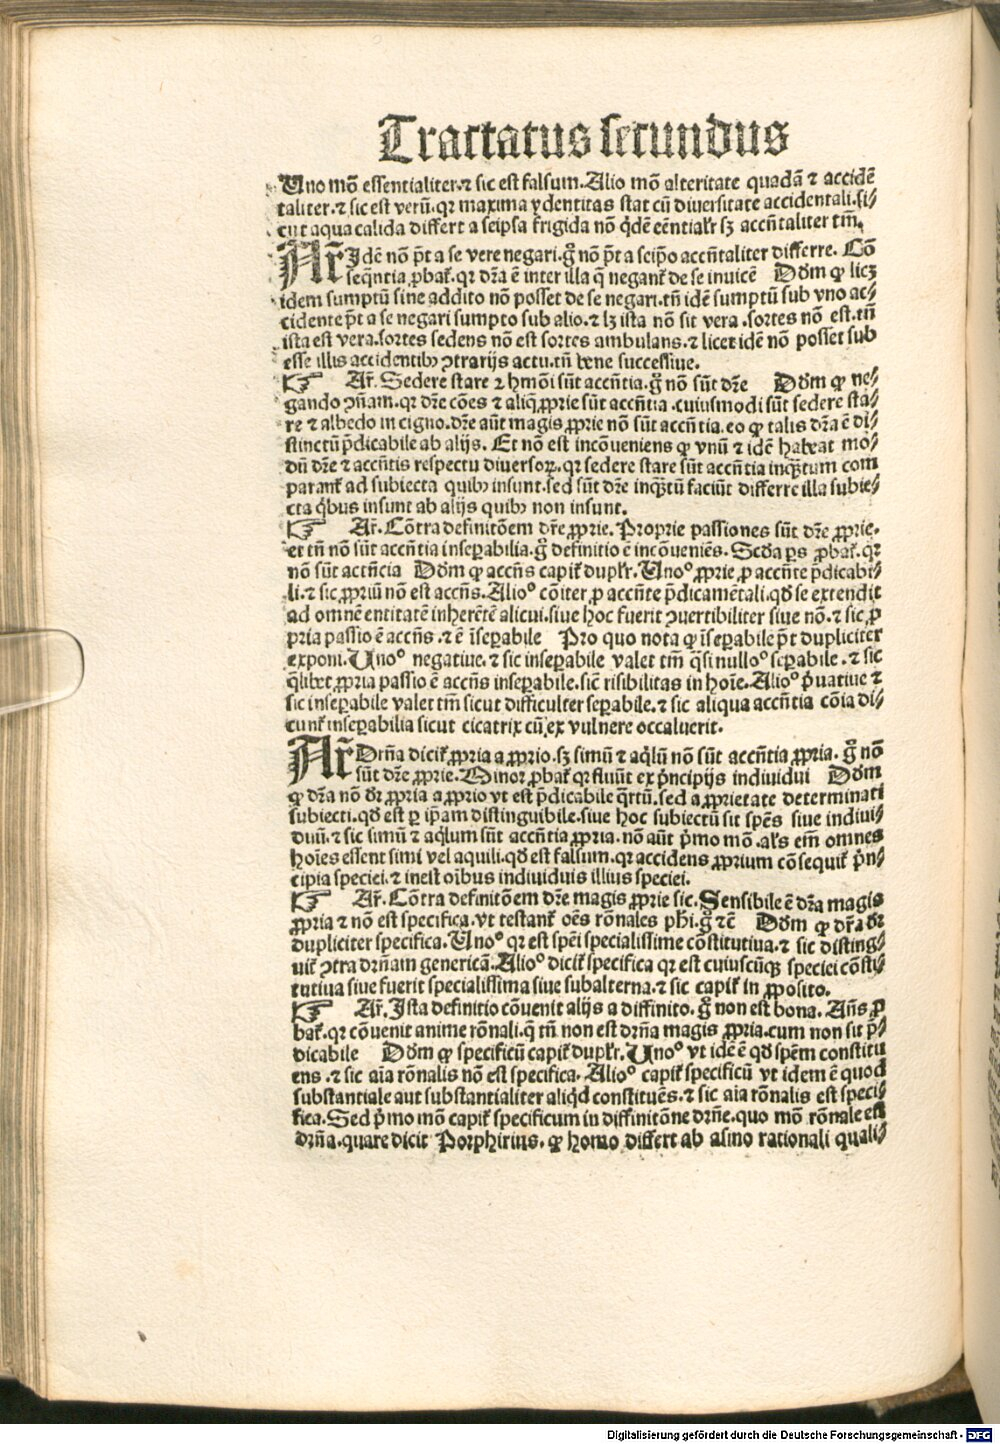 Tractatus secundus
Uno mõ essentialiter.⁊ sic est falsum. Alio mõ alteritate quadã ⁊ accidẽ
taliter.⁊ sic est verũ.qr maxima ydentitas stat cũ diuersitate accidentali.si⸗
cut aqua calida differt a seipsa frigida nõ qdẽ eẽntialr sꝫ accñtaliter tm̃.
Ar̃ Idẽ nõ pt̃ a se vere negari.g̃ nõ pt̃ a seip̃o accñtaliter differre. Cõ
seq̃ntia ꝓbat̃.qr dr̃a ẽ inter illa q̃ negant̃ de se inuicẽ Dõm ꝙ licꝫ
idem sumptũ sine addito nõ posset de se negari.tñ idẽ sumptũ sub vno ac⸗
cidente pt̃ a se negari sumpto sub alio.⁊ lꝫ ista nõ sit vera.sortes nõ est.tñ
ista est vera.sortes sedens nõ est sortes ambulans.⁊ licet idẽ nõ posset sub
esse illis accidentibꝰ ꝯtrarijs actu.tñ bene successiue.
☞ Ar̃. Sedere stare ⁊ hmõi sũt accñtia.g̃ nõ sũt dr̃e Dõm ꝙ ne⸗
gando ꝯñam.qr dr̃e cões ⁊ aliq̃ ꝓprie sũt accñtia.cuiusmodi sũt sedere sta⸗
re ⁊ albedo in cigno.dr̃e aũt magis ꝓprie nõ sũt accñtia.eo ꝙ talis dr̃a ẽ di⸗
stinctũ p̃dicabile ab alijs. Et nõ est incõueniens ꝙ vnũ ⁊ idẽ habeat mo⸗
dũ dr̃e ⁊ accñtis respectu diuersoꝝ.qr sedere stare sũt accñtia inq̃ntum com
parant̃ ad subiecta quibꝰ insunt.sed sũt dr̃e inq̃ntũ faciũt differre illa subie⸗
cta q̃bus insunt ab alijs quibꝰ non insunt.
☞ Ar̃. Cõtra definitõem dr̃e ꝓprie. Proprie passiones sũt dr̃e ꝓprie.
et tñ nõ sũt accñtia inseꝑabilia.g̃ definitio ẽ incõueniẽs. Scd̃a ꝑs ꝓbat̃.qr
nõ sũt accñcia Dõm ꝙ accñs capit̃ duplr̃. Unoº ꝓprie ꝓ accñte p̃dicabi⸗
li.⁊ sic ꝓpriũ nõ est accñs. Alioº cõiter ꝓ accñte p̃dicamẽtali.qd̃ se extendit
ad omnẽ entitatẽ inherẽtẽ alicui.siue hoc fuerit ꝯuertibiliter siue nõ.⁊ sic ꝓ
pria passio ẽ accñs.⁊ ẽ ĩseꝑabile Pro quo nota ꝙ ĩseꝑabile pt̃ dupliciter
exponi. Unoº negatiue.⁊ sic inseꝑabile valet tm̃ q̃si nulloº seꝑabile.⁊ sic
q̃libet ꝓpria passio ẽ accñs inseꝑabile.sicut risibilitas in hoĩe. Alioº p̃uatiue ⁊
sic inseꝑabile valet tm̃ sicut difficulter seꝑabile.⁊ sic aliqua accñtia cõia di⸗
cunt̃ inseꝑabilia sicut cicatrix cũ ex vulnere occaluerit.
Ar̃ Drñia dicit̃ ꝓpria a ꝓprio.sꝫ simũ ⁊ aq̃lũ nõ sũt accñtia ꝓpria.g̃ nõ
sũt dr̃e ꝓprie. Minor ꝓbat̃ qr fluũt ex p̃ncipijs indiuidui Dõm
ꝙ dr̃a nõ dr̃ ꝓpria a ꝓprio vt est p̃dicabile q̃rtũ.sed a ꝓprietate determinati
subiecti.qd̃ est ꝑ ip̃am distinguibile.siue hoc subiectũ sit spẽs siue indiui⸗
duũ.⁊ sic simũ ⁊ aq̃lum sũt accñtia ꝓpria.nõ aũt p̃mo mõ.als em̃ omnes
hoĩes essent simi vel aquili.qd̃ est falsum.qr accidens ꝓprium cõsequit̃ p̃n⸗
cipia speciei.⁊ inest oĩbus indiuiduis illius speciei.
☞ Ar̃. Cõtra definitõem dr̃e magis ꝓprie sic. Sensibile ẽ dr̃a magis
ꝓpria ⁊ nõ est specifica.vt testant̃ oẽs rõnales phi.g̃ ⁊ẽ Dõm ꝙ dr̃a dr̃
dupliciter specifica. Unoº qr est spẽi specialissime cõstitutiua.⁊ sic disting⸗
uit̃ ꝯtra drñam genericã. Alioº dicit̃ specifica qr est cuiuscũqꝫ speciei cõsti⸗
tutiua siue fuerit specialissima siue subalterna.⁊ sic capit̃ in ꝓposito.
☞ Ar̃. Ista definitio cõuenit alijs a diffinito.g̃ non est bona. Añs ꝓ
bat̃.qr cõuenit anime rõnali.q̃ tñ non est drñia magis ꝓpria.cum non sit p̃⸗
dicabile Dõm ꝙ specificũ capit̃ duplr̃. Unoº vt idẽ ẽ qd̃ spẽm constitu
ens.⁊ sic aĩa rõnalis nõ est specifica. Alioº capit̃ specificũ vt idem ẽ quod
substantiale aut substantialiter aliqd̃ constituẽs.⁊ sic aĩa rõnalis est speci⸗
fica. Sed p̃mo mõ capit̃ specificum in diffinitõne drñe.quo mõ rõnale est
drñia.quare dicit Porphirius.ꝙ homo differt ab asino rationali quali⸗
Digitalisierung gefördert durch die Deutsche Forschungsgemeinschaft - DFG